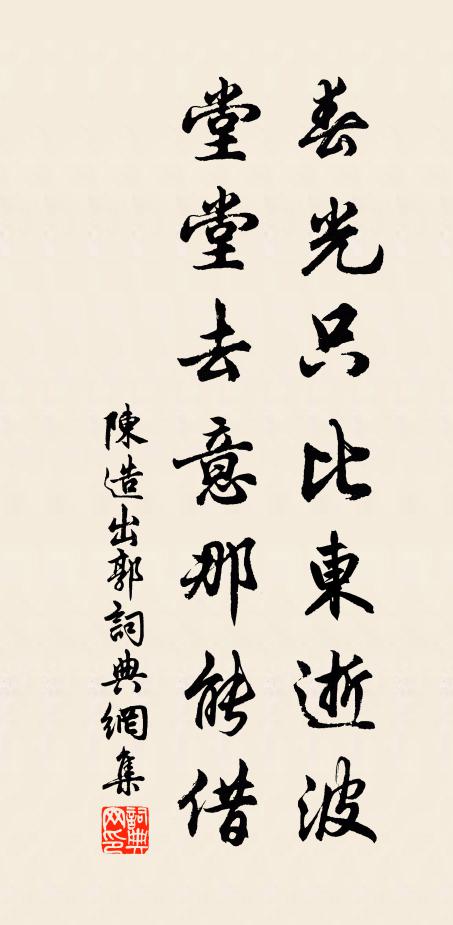 春光只比東逝波
堂堂去意那能借
陳造出郭詞典網集
詞典網印